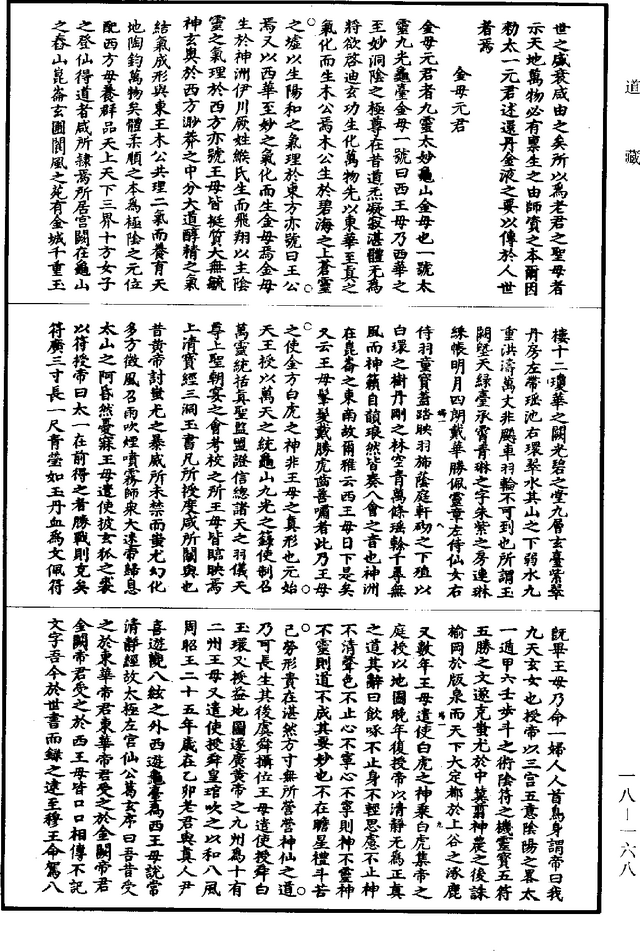 道藏
世之盛衰咸由之矣所以為老君之聖母者
示天地萬物必有稟生之由師資之本爾因
勑太一元君述還丹金液之要以傳於人世
者焉
金母元君
金母元君者九靈太妙龜山金母也一號太
靈九光龜臺金母一號曰西王母乃西華之
至妙洞陰之極尊在昔道炁凝寂湛體无為
將欲啓迪玄功生化萬物先以東華至真之
氣化而生木公焉木公生於碧海之上蒼靈
之墟以生陽和之氣理於東方亦號曰王公
焉又以西華至妙之氣化而生金母焉金母
生於神洲伊川厥姓緱氏生而飛翔以主陰
靈之氣理於西方亦號王母皆挺質大無毓
神玄奧於西方渺莽之中分大道醇精之氣
結氣成形與東王木公共理二氣而養育天
地陶鈞萬物矣體柔順之本為極陰之元位
配西方母養群品天上天下三界十方女子
之登仙得道者咸所隸焉所居宮闕在龜山
之舂山崑崙玄圃閬風之苑有金城千重玉
樓十二瓊華之闕光碧之堂九層玄臺紫翠
丹房左帶瑤池右環翠水其山之下弱水九
重洪濤萬丈非飈車羽輪不可到也所謂玉
闕墍天綠臺承霄青琳之宇朱紫之房連琳
綵帳明月四朗戴華勝佩靈章左侍仙女右
侍羽童寶蓋踏映羽旆蔭庭軒砌之下殖以
白環之樹丹剛之林空青萬條瑤榦千尋無
風而神籟自韻琅然皆奏八會之音也神洲
在崑崙之東南故爾雅云西王母日下是矣
又云王母蓬髮戴勝虎齒善嘯者此乃王母
之使金方白虎之神非王母之真形也元始
天王授以萬天之統龜山九光之籙使制召
萬靈統括真聖監盟證信總諸天之羽儀天
尊上聖朝宴之會考校之所王母皆臨映焉
上清寶經三洞玉書凡所授度咸所關與也
昔黃帝討蚩尤之暴威所未禁而蚩尤幻化
多方微風召雨吹煙噴霧師衆大迷帝歸息
太山之阿昏然憂寐王母遣使披玄狐之裘
以符授帝曰太一在前得之者勝戰則克矣
符廣三寸長一尺青瑩如玉丹血為文佩符
既畢王母乃命一婦人人首鳥身謂帝曰我
九天玄女也授帝以三宮五意陰陽之畧太
一遁甲六壬步斗之術陰符之機靈寶五符
五勝之文遂克蚩尤於中冀翦神農之後誅
榆岡於版泉而天下大定都於上谷之涿鹿
又數年王母遣使白虎之神乘白虎集帝之
庭授以地圖晚年復授帝以清靜无為正真
之道其辭曰飲啄不止身不輕思慮不止神
不清聲色不止心不寧心不寧則神不靈神
不靈則道不成其要妙也不在瞻星禮斗苦
己勞形貴在湛然方寸無所營營神仙之道
乃可長生其後虞舜攝位王母遣使授舜白
玉環又授益地圖遂廣黃帝之九州為十有
二州王母又遣使授舜皇琯吹之以和八風
周昭王二十五年歲在乙卯老君與真人尹
喜遊觀八紘之外西遊龜臺為西王母說常
清靜經故太極左宮仙公葛玄序曰吾昔受
之於東華帝君東華帝君受之於金闕帝君
金闕帝君受之於西王母皆口口相傳不記
文字吾今於世書而錄之逮至穆王命駕八
一八—一六八